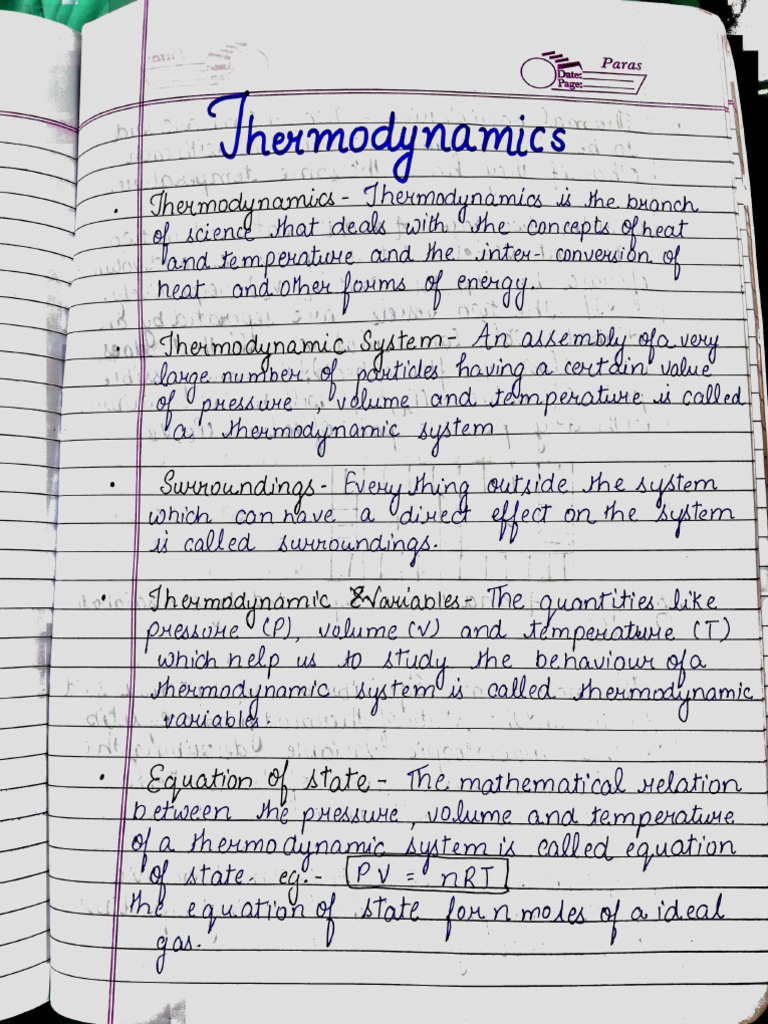 Paras
Date:
Page:
Thermodynamics
• Thermodynamics - Thermodynamics is the branch
of science that deals with the concepts of heat
and temperature and the inter- conversion of
heat and other forms of energy.
• Thermodynamic System - An assembly of a very
large number of particles having a certain value
of pressure, volume and temperature is called
a thermodynamic system
• Surroundings - Everything outside the system
which can have a direct effect on the system
is called surroundings.
• Thermodynamic Variables - The quantities like
pressure (P), volume (V) and temperature (T)
which help us to study the behaviour of a
thermodynamic system is called thermodynamic
variables.
• Equation of state - The mathematical relation
between the pressure, volume and temperature
of a thermodynamic system is called equation
of state. eg. - PV = nRT
the equation of state for n moles of a ideal
gas.